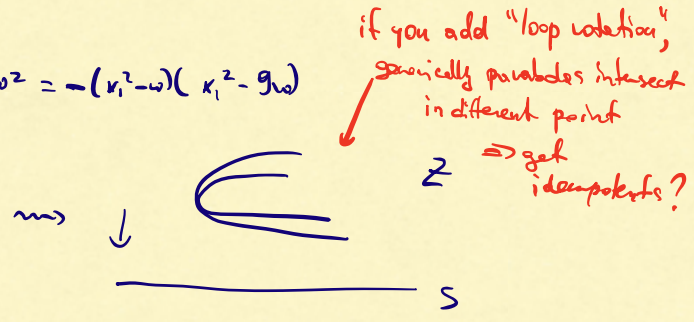 if you add "loop rotation",
generically parabolas intersect
in different point
⇒ get
idempotents?
² = -(x₁²-w)(x₁²-9w)
Z
S